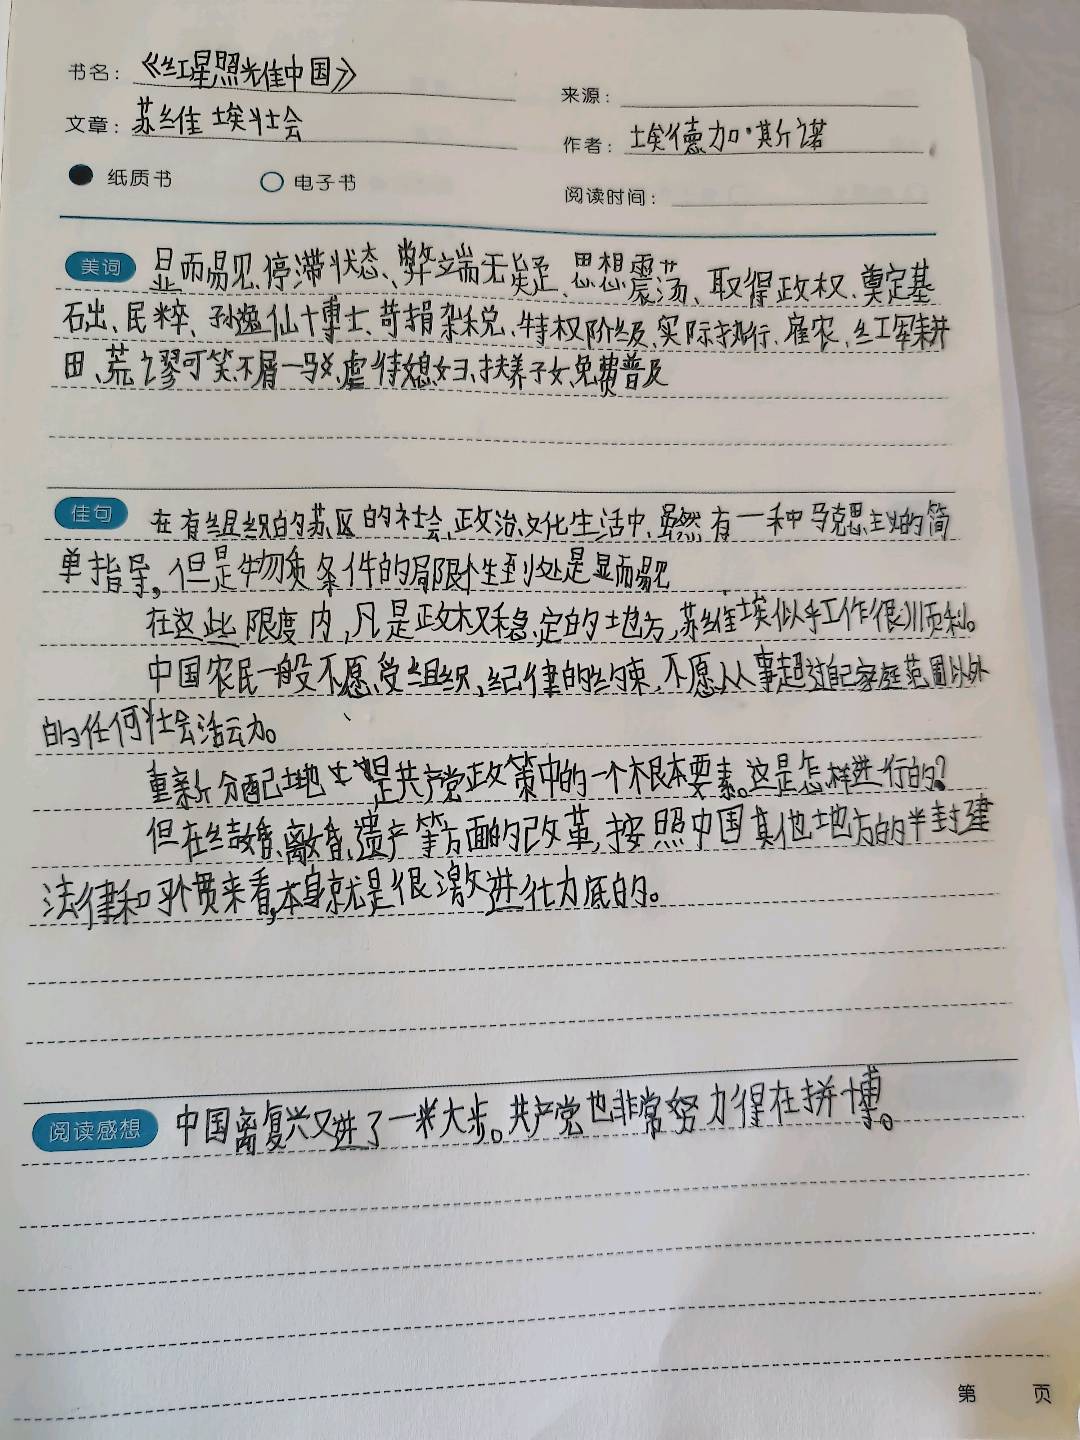 书名：《红星照耀中国》
来源：
文章：苏维埃社会
作者：埃德加·斯诺
纸质书 电子书
阅读时间：
美词 显而易见、停滞状态、弊端无疑、思想震荡、取得政权、奠定基
石出、民粹、孙逸仙博士、苛捐杂税、特权阶级、实际执行、雇农、红军耕
田、荒谬可笑、不屑一驳、虐待媳妇、扶养子女、免费普及
佳句 在有组织的苏区的社会、政治、文化生活中，虽然有一种马克思主义的简
单指导，但是物质条件的局限性到处是显而易见
在这些限度内，凡是政权稳定的地方，苏维埃似乎工作很顺利。
中国农民一般不愿受组织，纪律的约束，不愿从事超过自己家庭范围以外
的任何社会活动。
重新分配土地是共产党政策中的一个根本要素。这是怎样进行的？
但在结婚、离婚、遗产等方面的改革，按照中国其他地方的半封建
法律和习惯来看，本身就是很激进彻底的。
阅读感想 中国离复兴又进了一大步。共产党也非常努力得在拼博。
第 页